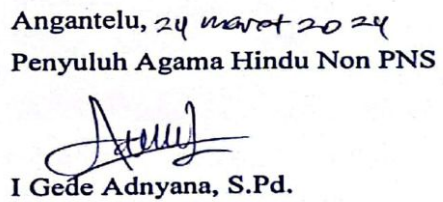 Angantelu, 24 maret 2024
Penyuluh Agama Hindu Non PNS
I Gede Adnyana, S.Pd.